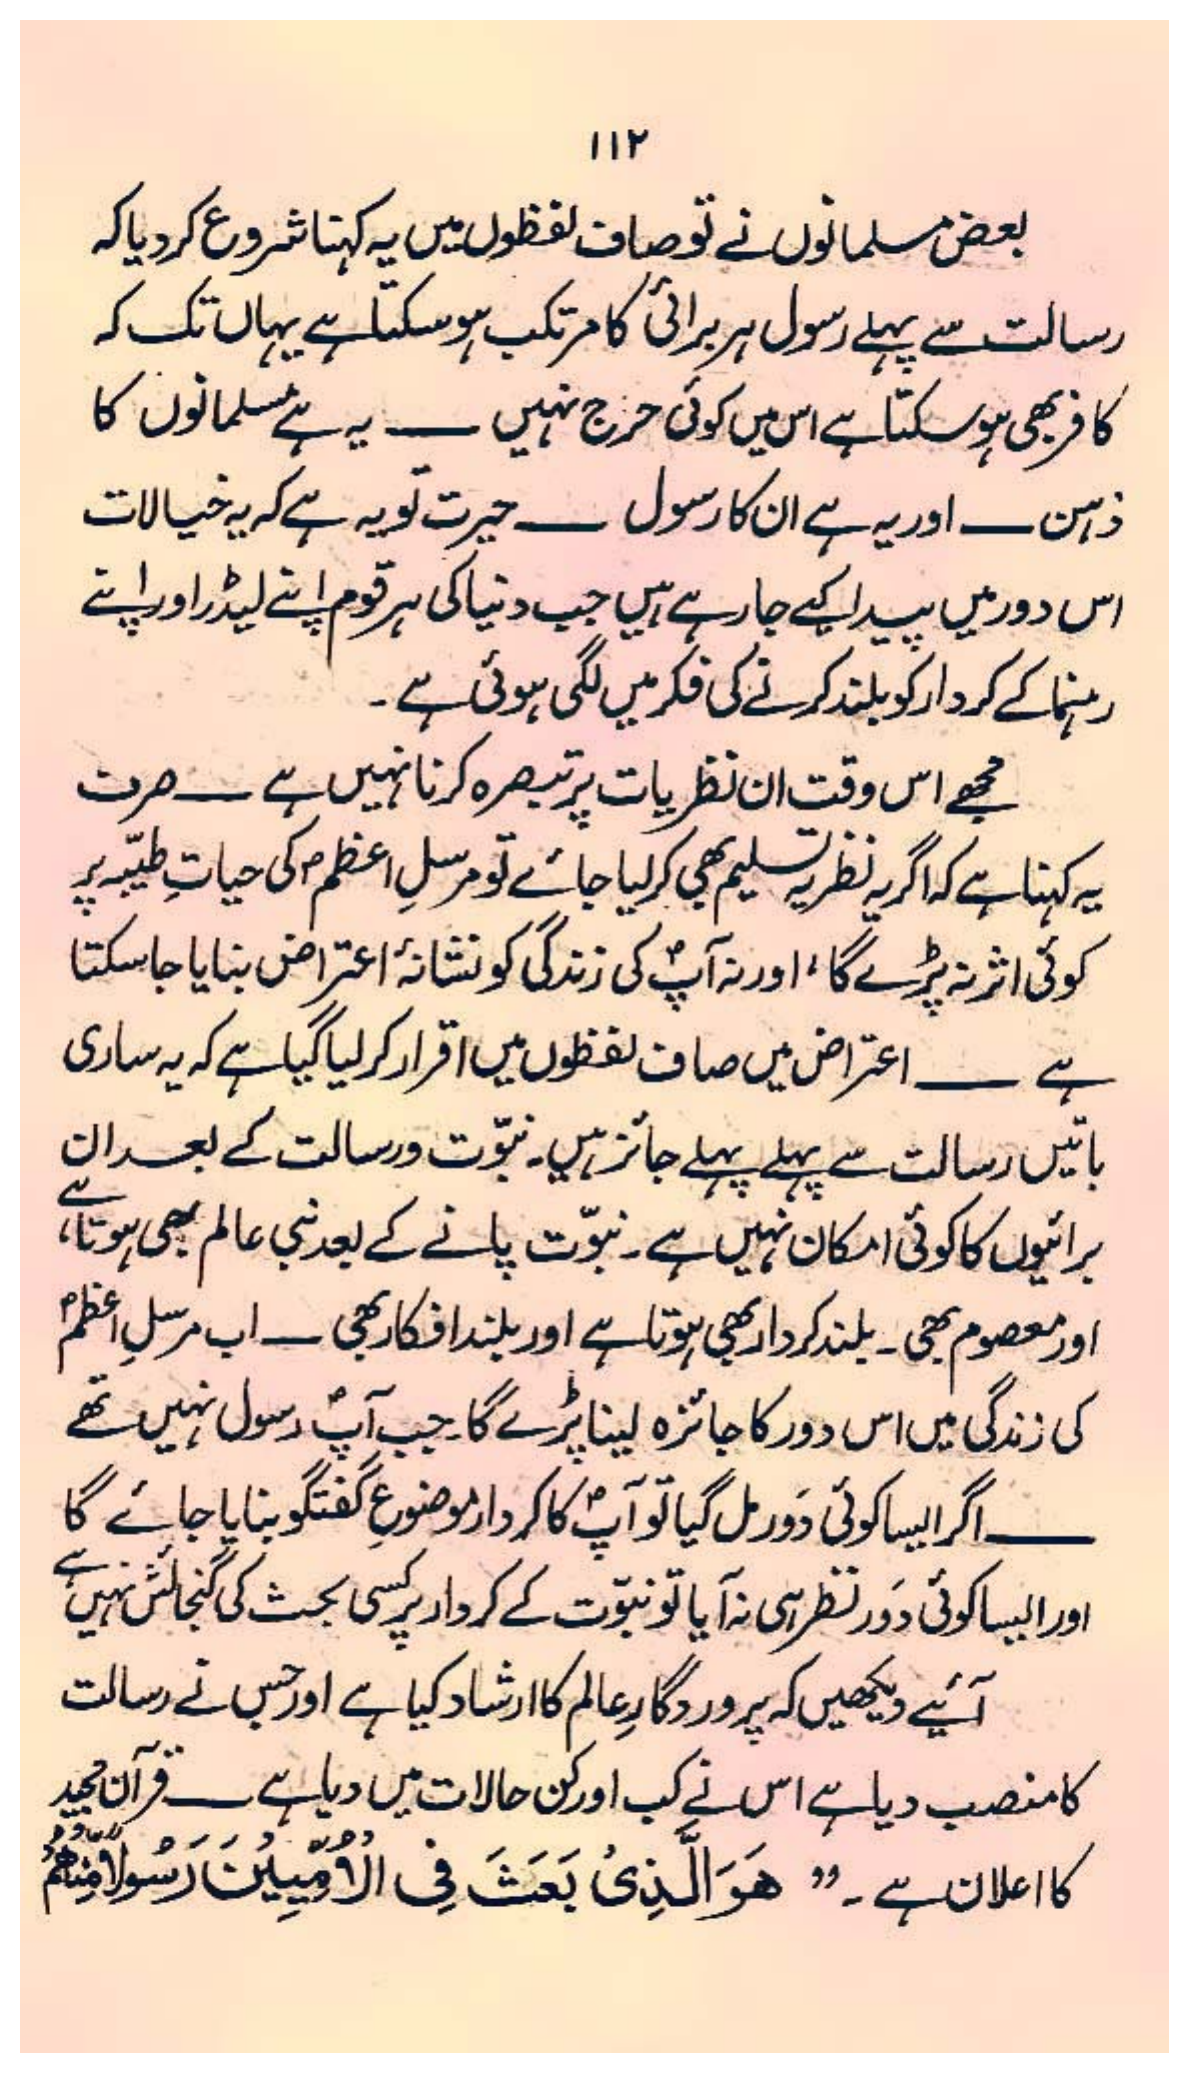 ۱۱۲
بعض مسلمانوں نے تو صاف لفظوں میں یہ کہنا شروع کر دیا کہ
رسالت سے پہلے رسول ہر برائی کا مرتکب ہو سکتا ہے یہاں تک کہ
کافر بھی ہو سکتا ہے اس میں کوئی حرج نہیں — یہ ہے مسلمانوں کا
ذہن — اور یہ ہے ان کا رسول — حیرت تو یہ ہے کہ یہ خیالات
اس دور میں پیدا کیے جا رہے ہیں جب دنیا کی ہر قوم اپنے لیڈر اور اپنے
رہنما کے کردار کو بلند کرنے کی فکر میں لگی ہوئی ہے ۔
مجھے اس وقت ان نظریات پر تبصرہ کرنا نہیں ہے — صرف
یہ کہنا ہے کہ اگر یہ نظریہ تسلیم بھی کر لیا جائے تو مرسلِ اعظمؐ کی حیاتِ طیّبہ پر
کوئی اثر نہ پڑے گا، اور نہ آپؐ کی زندگی کو نشانۂ اعتراض بنایا جا سکتا
ہے — اعتراض میں صاف لفظوں میں اقرار کر لیا گیا ہے کہ یہ ساری
باتیں رسالت سے پہلے پہلے جائز ہیں۔ نبوّت و رسالت کے بعد ان
برائیوں کا کوئی امکان نہیں ہے۔ نبوّت پانے کے بعد نبی عالم بھی ہوتا ہے،
اور معصوم بھی۔ بلند کردار بھی ہوتا ہے اور بلند افکار بھی — اب مرسلِ اعظمؐ
کی زندگی میں اس دور کا جائزہ لینا پڑے گا۔ جب آپؐ رسول نہیں تھے
— اگر ایسا کوئی دَور مل گیا تو آپؐ کا کردار موضوعِ گفتگو بنایا جائے گا
اور ایسا کوئی دَور نظر ہی نہ آیا تو نبوّت کے کردار پر کسی بحث کی گنجائش نہیں ہے
آئیے دیکھیں کہ پروردگارِ عالم کا ارشاد کیا ہے اور جس نے رسالت
کا منصب دیا ہے اس نے کب اور کن حالات میں دیا ہے — قرآن مجید
کا اعلان ہے ۔ ” هُوَ الَّذِیْ بَعَثَ فِی الْاُمِّیِّیْنَ رَسُوْلًا مِّنْهُمْ